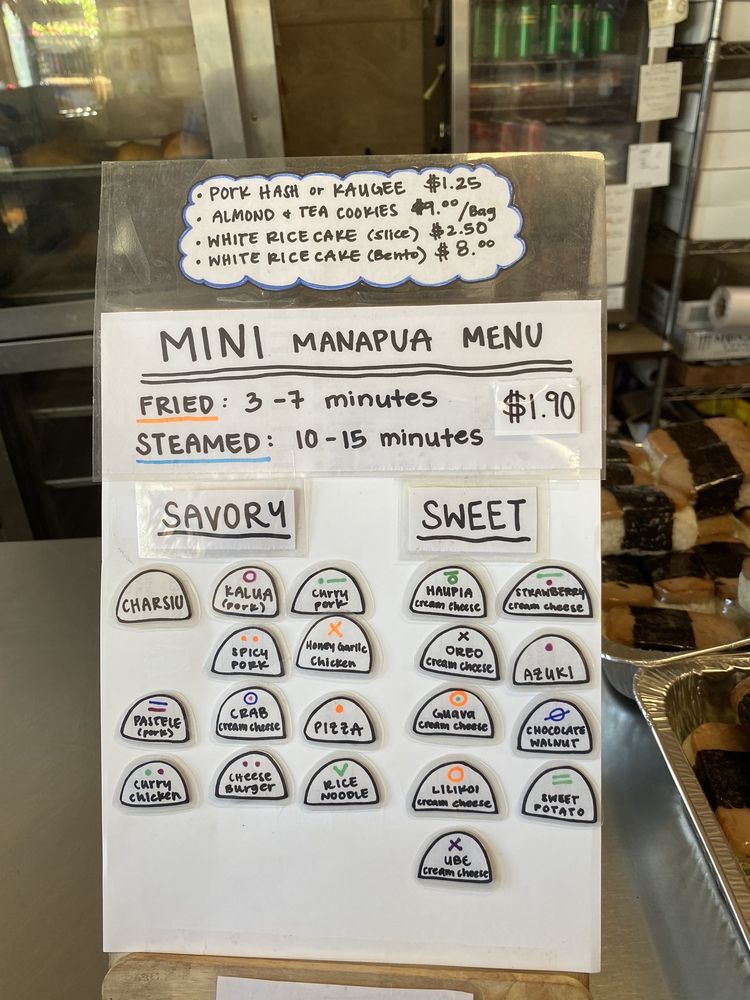 • PORK HASH or KAUGEE $1.25
• ALMOND & TEA COOKIES $9.00/Bag
• WHITE RICE CAKE (slice) $2.50
• WHITE RICE CAKE (Bento) $8.00
MINI MANAPUA MENU
FRIED: 3-7 minutes
$1.90
STEAMED: 10-15 minutes
SAVORY
SWEET
CHARSIU
KALUA
(pork)
Curry
pork
SPICY
PORK
Honey Garlic
Chicken
PASTELE
(pork)
CRAB
cream cheese
PIZZA
Curry
chicken
CHEESE
Burger
RICE
NOODLE
HAUPIA
cream cheese
STRAWBERRY
cream cheese
OREO
cream cheese
AZUKI
Guava
cream cheese
CHOCOLATE
WALNUT
LILIKOI
cream cheese
SWEET
POTATO
UBE
cream cheese